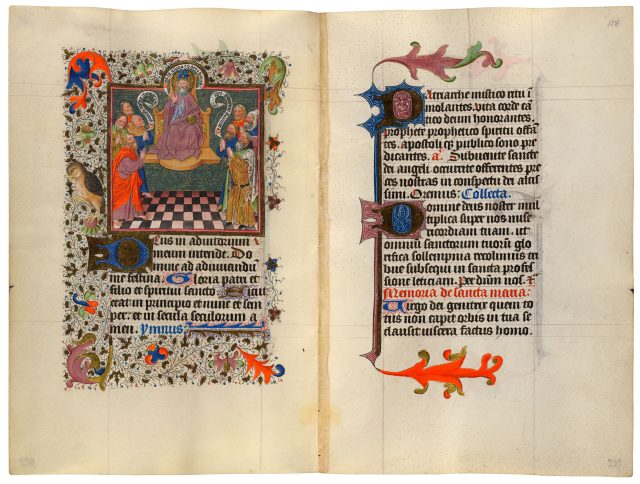 Deus in adiutorium
meum intende. Do
mine ad adiuuandū
me festina. Gloria patri et
filio et spiritui sancto. Sicut
erat in principio et nunc et sem
per: et in secula seculorum a
men. Ymnus:
118
Patriarche mistico ritu ī
molantes. vita corde
deum honorantes.
prophete prophetico spiritu
tes. apostoli qꝫ publico sono pre
dicantes. a. Subuenite sancte
dei angeli. occurite offerentes pre
ces nostras in conspectu dei altis
simi. Oremus: Collecta.
Domine deus noster mul
tiplica super nos mise
ricordiam tuam. ut
omnium sanctorum tuorū glo
sollempnia recolimus tri
bue subsequi in sancta profes
sione leticiam. Per dūm nos.
Memoria de sancta maria:
Virgo dei genitrix quem to
tus non capit orbis in tua se
clausit viscera factus homo.